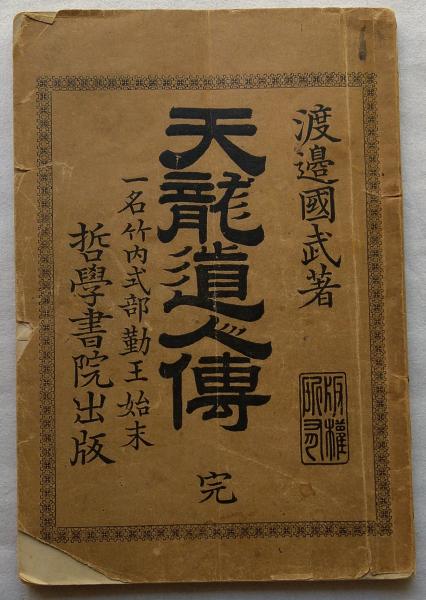 渡邊國武著
版權所有
天龍道人傳
完
一名竹内式部勤王始末
哲學書院出版